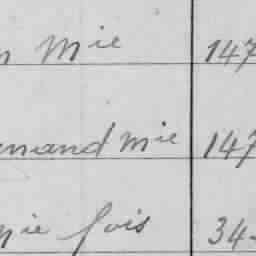 n Mie 147
enand Mie 147
Mie fois 34